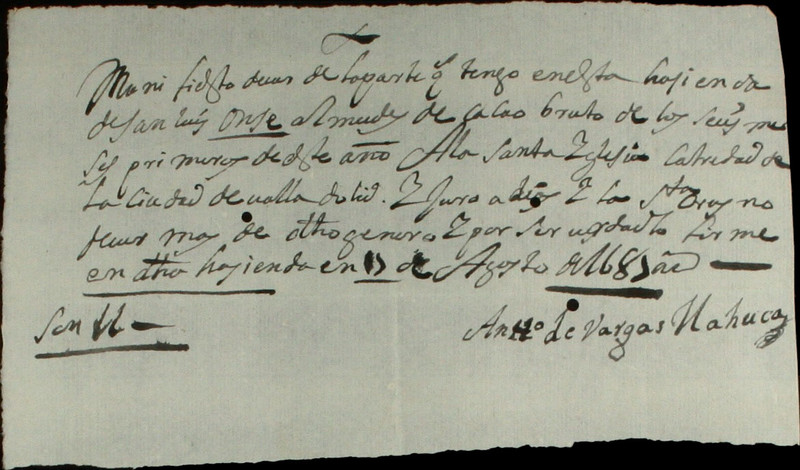 Mani fiesto deuer de la parte q tengo en esta hasienda
de san luis onse almudes de cacao bruto de los seis me
ses primeros de este año A la santa Yglesia Catredad de
la ciudad de ualladolid. Y Juro a dios Y la sta Crus no
deuer mas de dtho genero Y por ser uerdad lo firme
en dtha hasienda en 17 de Agosto de 1687 as
son 11
Antto de Vargas Mahuca